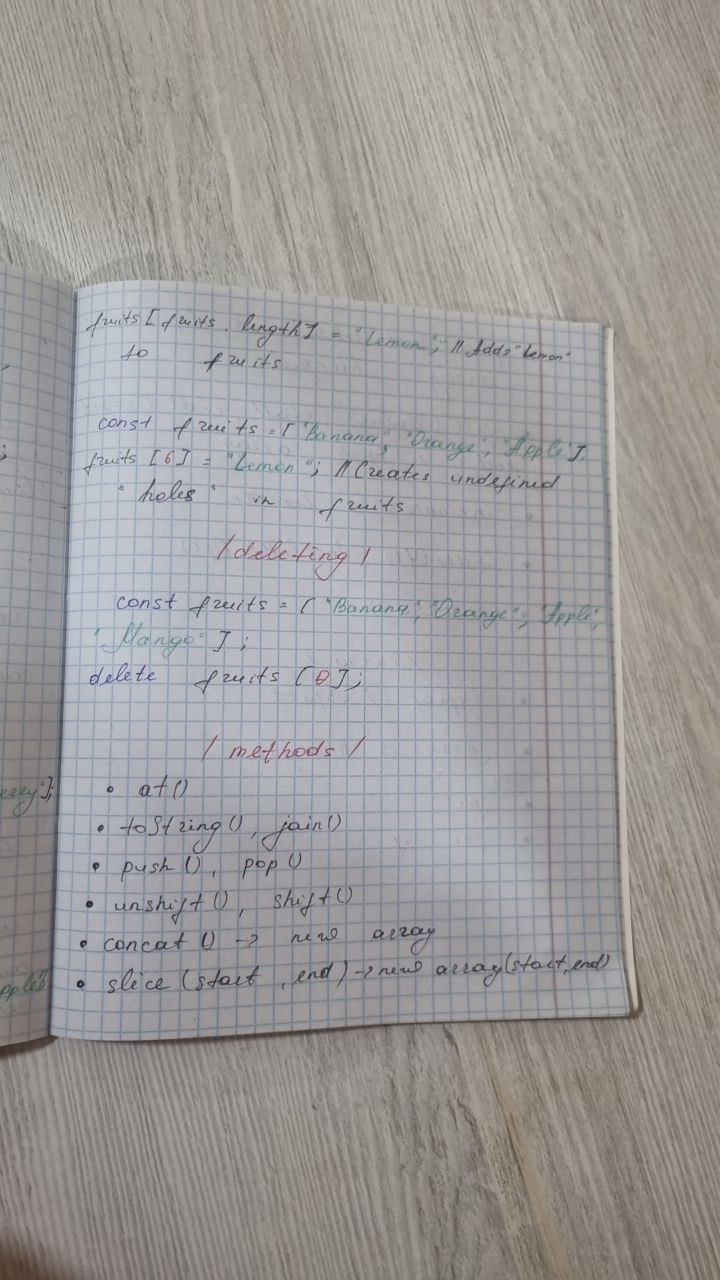 fruits [fruits . length] = "Lemon"; // Adds "Lemon"
to fruits
const fruits = ["Banana", "Orange", "Apple"];
fruits [6] = "Lemon"; // Creates undefined
"holes" in fruits
/ deleting /
const fruits = ["Banana", "Orange", "Apple",
"Mango"];
delete fruits [0];
/ methods /
• at()
• toString(), join()
• push(), pop()
• unshift(), shift()
• concat() -> new array
• slice (start, end) -> new array (start, end)
;
errey"];
pple"